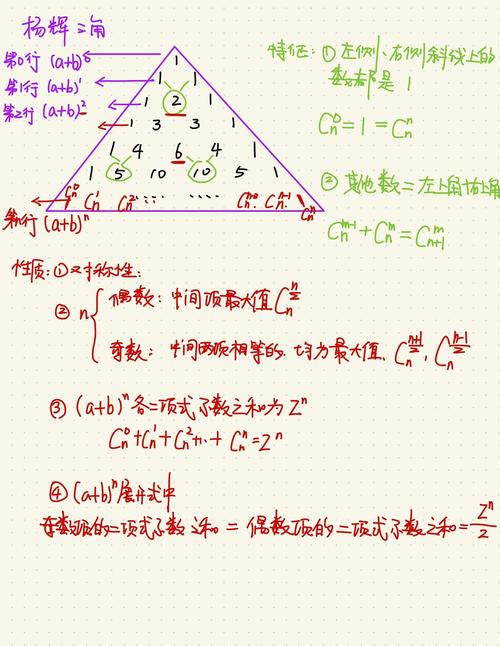 杨辉三角
第0行 (a+b)⁰
第1行 (a+b)¹
第2行 (a+b)²
第n行 (a+b)ⁿ
1
1 1
1 2 1
1 3 3 1
1 4 6 4 1
1 5 10 10 5 1
Cₙ⁰ Cₙ¹ Cₙ² ···· ···· Cₙⁿ⁻² Cₙⁿ⁻¹ Cₙⁿ
特征: ① 左侧、右侧斜线上的
数都是 1
Cₙ⁰ = 1 = Cₙⁿ
② 其他数=左上角+右上角
Cₙᵐ⁻¹ + Cₙᵐ = Cₙ₊₁ᵐ
性质: ① 对称性:
② n { 偶数: 中间项最大值 Cₙ^(n/2)
奇数: 中间两项相等的. 均为最大值. Cₙ^((n+1)/2), Cₙ^((n-1)/2)
③ (a+b)ⁿ 各二项式系数之和为 2ⁿ
Cₙ⁰+Cₙ¹+Cₙ²+···+ Cₙⁿ=2ⁿ
④ (a+b)ⁿ展开式中
奇数项的二项式系数之和 = 偶数项的二项式系数之和=2ⁿ/2